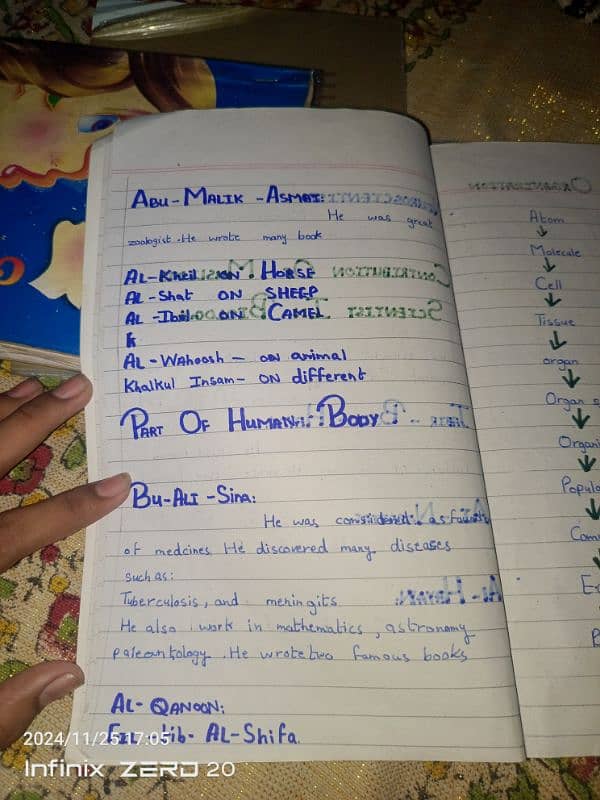 ABU-MALIK-ASMAI:
He was great
zoologist. He wrote many book
AL-Kheil ON HORSE
AL-Shat ON SHEEP
AL-Ibil ON CAMEL
K
AL-Wahoosh - ON animal
Khalkul Insam- ON different
PART OF HUMAN BODY
BU-ALI-Sina:
He was considered as
of medcines. He discovered many diseases
such as:
Tuberculosis, and meningits
He also work in mathematics, astronomy
paleantology. He wrote two famous books
AL-QANOON:
AL-Shifa.
Atom
Molecule
Cell
Tissue
organ
Organ s
Organi
Popula
Com
E
2024/11/25 17:05
Infinix ZERO 20